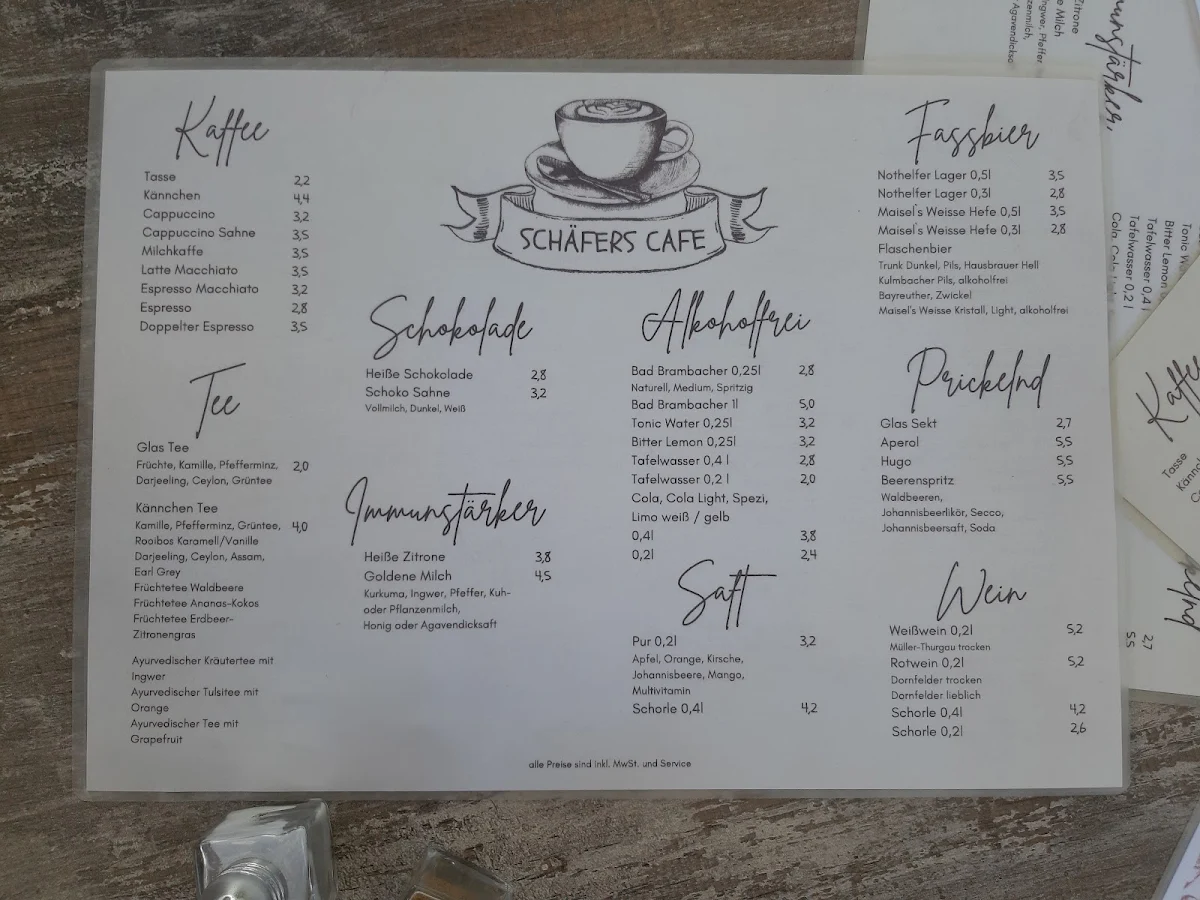 SCHÄFERS CAFE
Kaffee
Tasse 2,2
Kännchen 4,4
Cappuccino 3,2
Cappuccino Sahne 3,5
Milchkaffe 3,5
Latte Macchiato 3,5
Espresso Macchiato 3,2
Espresso 2,8
Doppelter Espresso 3,5
Tee
Glas Tee
Früchte, Kamille, Pfefferminz, 2,0
Darjeeling, Ceylon, Grüntee
Kännchen Tee
Kamille, Pfefferminz, Grüntee, 4,0
Rooibos Karamell/Vanille
Darjeeling, Ceylon, Assam,
Earl Grey
Früchtetee Waldbeere
Früchtetee Ananas-Kokos
Früchtetee Erdbeer-
Zitronengras
Ayurvedischer Kräutertee mit
Ingwer
Ayurvedischer Tulsitee mit
Orange
Ayurvedischer Tee mit
Grapefruit
Schokolade
Heiße Schokolade 2,8
Schoko Sahne 3,2
Vollmilch, Dunkel, Weiß
Immunstärker
Heiße Zitrone 3,8
Goldene Milch 4,5
Kurkuma, Ingwer, Pfeffer, Kuh-
oder Pflanzenmilch,
Honig oder Agavendicksaft
Alkoholfrei
Bad Brambacher 0,25l 2,8
Naturell, Medium, Spritzig
Bad Brambacher 1l 5,0
Tonic Water 0,25l 3,2
Bitter Lemon 0,25l 3,2
Tafelwasser 0,4 l 2,8
Tafelwasser 0,2 l 2,0
Cola, Cola Light, Spezi,
Limo weiß / gelb
0,4l 3,8
0,2l 2,4
Saft
Pur 0,2l 3,2
Apfel, Orange, Kirsche,
Johannisbeere, Mango,
Multivitamin
Schorle 0,4l 4,2
Fassbier
Nothelfer Lager 0,5l 3,5
Nothelfer Lager 0,3l 2,8
Maisel's Weisse Hefe 0,5l 3,5
Maisel's Weisse Hefe 0,3l 2,8
Flaschenbier
Trunk Dunkel, Pils, Hausbrauer Hell
Kulmbacher Pils, alkoholfrei
Bayreuther, Zwickel
Maisel's Weisse Kristall, Light, alkoholfrei
Prickelnd
Glas Sekt 2,7
Aperol 5,5
Hugo 5,5
Beerenspritz 5,5
Waldbeeren,
Johannisbeerlikör, Secco,
Johannisbeersaft, Soda
Wein
Weißwein 0,2l 5,2
Müller-Thurgau trocken
Rotwein 0,2l 5,2
Dornfelder trocken
Dornfelder lieblich
Schorle 0,4l 4,2
Schorle 0,2l 2,6
alle Preise sind inkl. MwSt. und Service
Zitrone
Milch
Pfeffer
Agavendickso
Bitter Lemon
Tafelwasser 0,4 l
Tafelwasser 0,2 l
Kaffee
Tasse
2,7
5,5